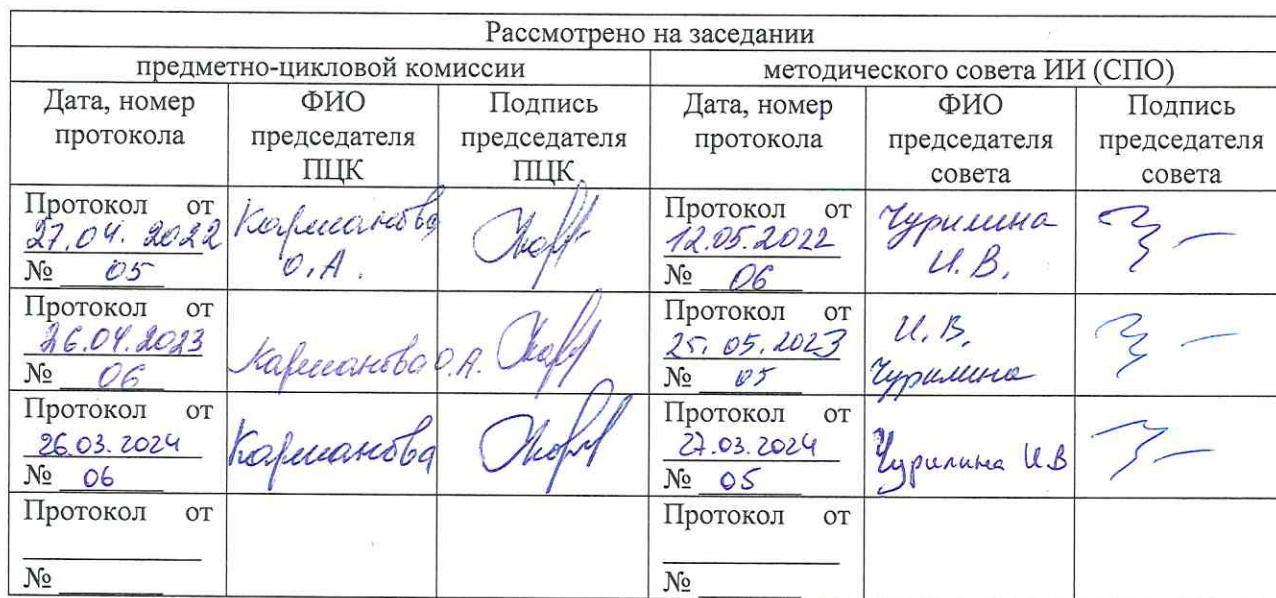 Рассмотрено на заседании
предметно-цикловой комиссии методического совета ИИ (СПО)
Дата, номер протокола ФИО председателя ПЦК Подпись председателя ПЦК Дата, номер протокола ФИО председателя совета Подпись председателя совета
Протокол от
27.04.2022
№ 05
Карманова
О.А.
Протокол от
12.05.2022
№ 06
Чурилина
И.В.
Протокол от
26.04.2023
№ 06
Карманова О.А.
Протокол от
25.05.2023
№ 05
И.В.
Чурилина
Протокол от
26.03.2024
№ 06
Карманова
Протокол от
27.03.2024
№ 05
Чурилина И.В
Протокол от
№
Протокол от
№